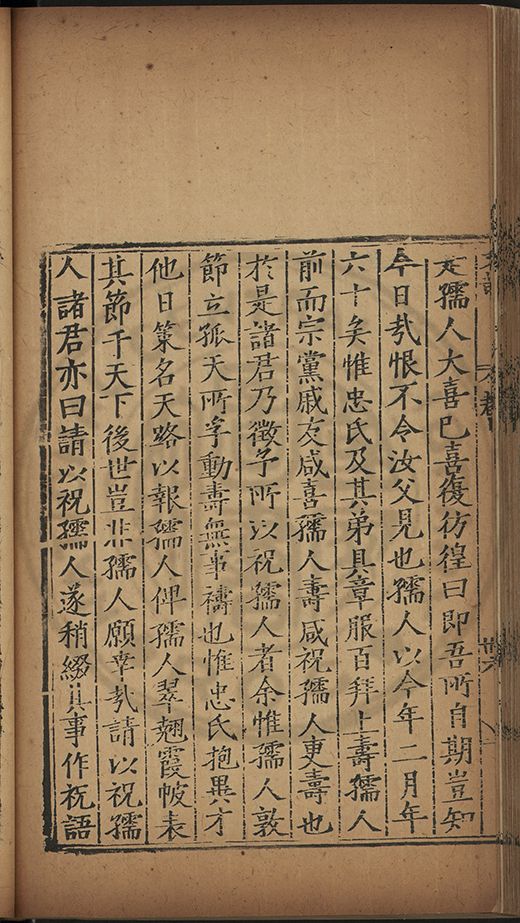 定孺人大喜已喜復彷徨曰即吾所自期豈知
今日㢤恨不令汝父見也孺人以今年二月年
六十矣惟忠氏及其弟具章服百拜上壽孺人
前而宗黨戚友咸喜孺人壽咸祝孺人更壽也
於是諸君乃徵予所以祝孺人者余惟孺人敦
節立孤天所孚動壽無事禱也惟忠氏抱異才
他日策名天路以報孺人俾孺人翠翹霞帔表
其節千天下後世豈非孺人願幸㢤請以祝孺
人諸君亦曰請以祝孺人遂稍綴其事作祝語